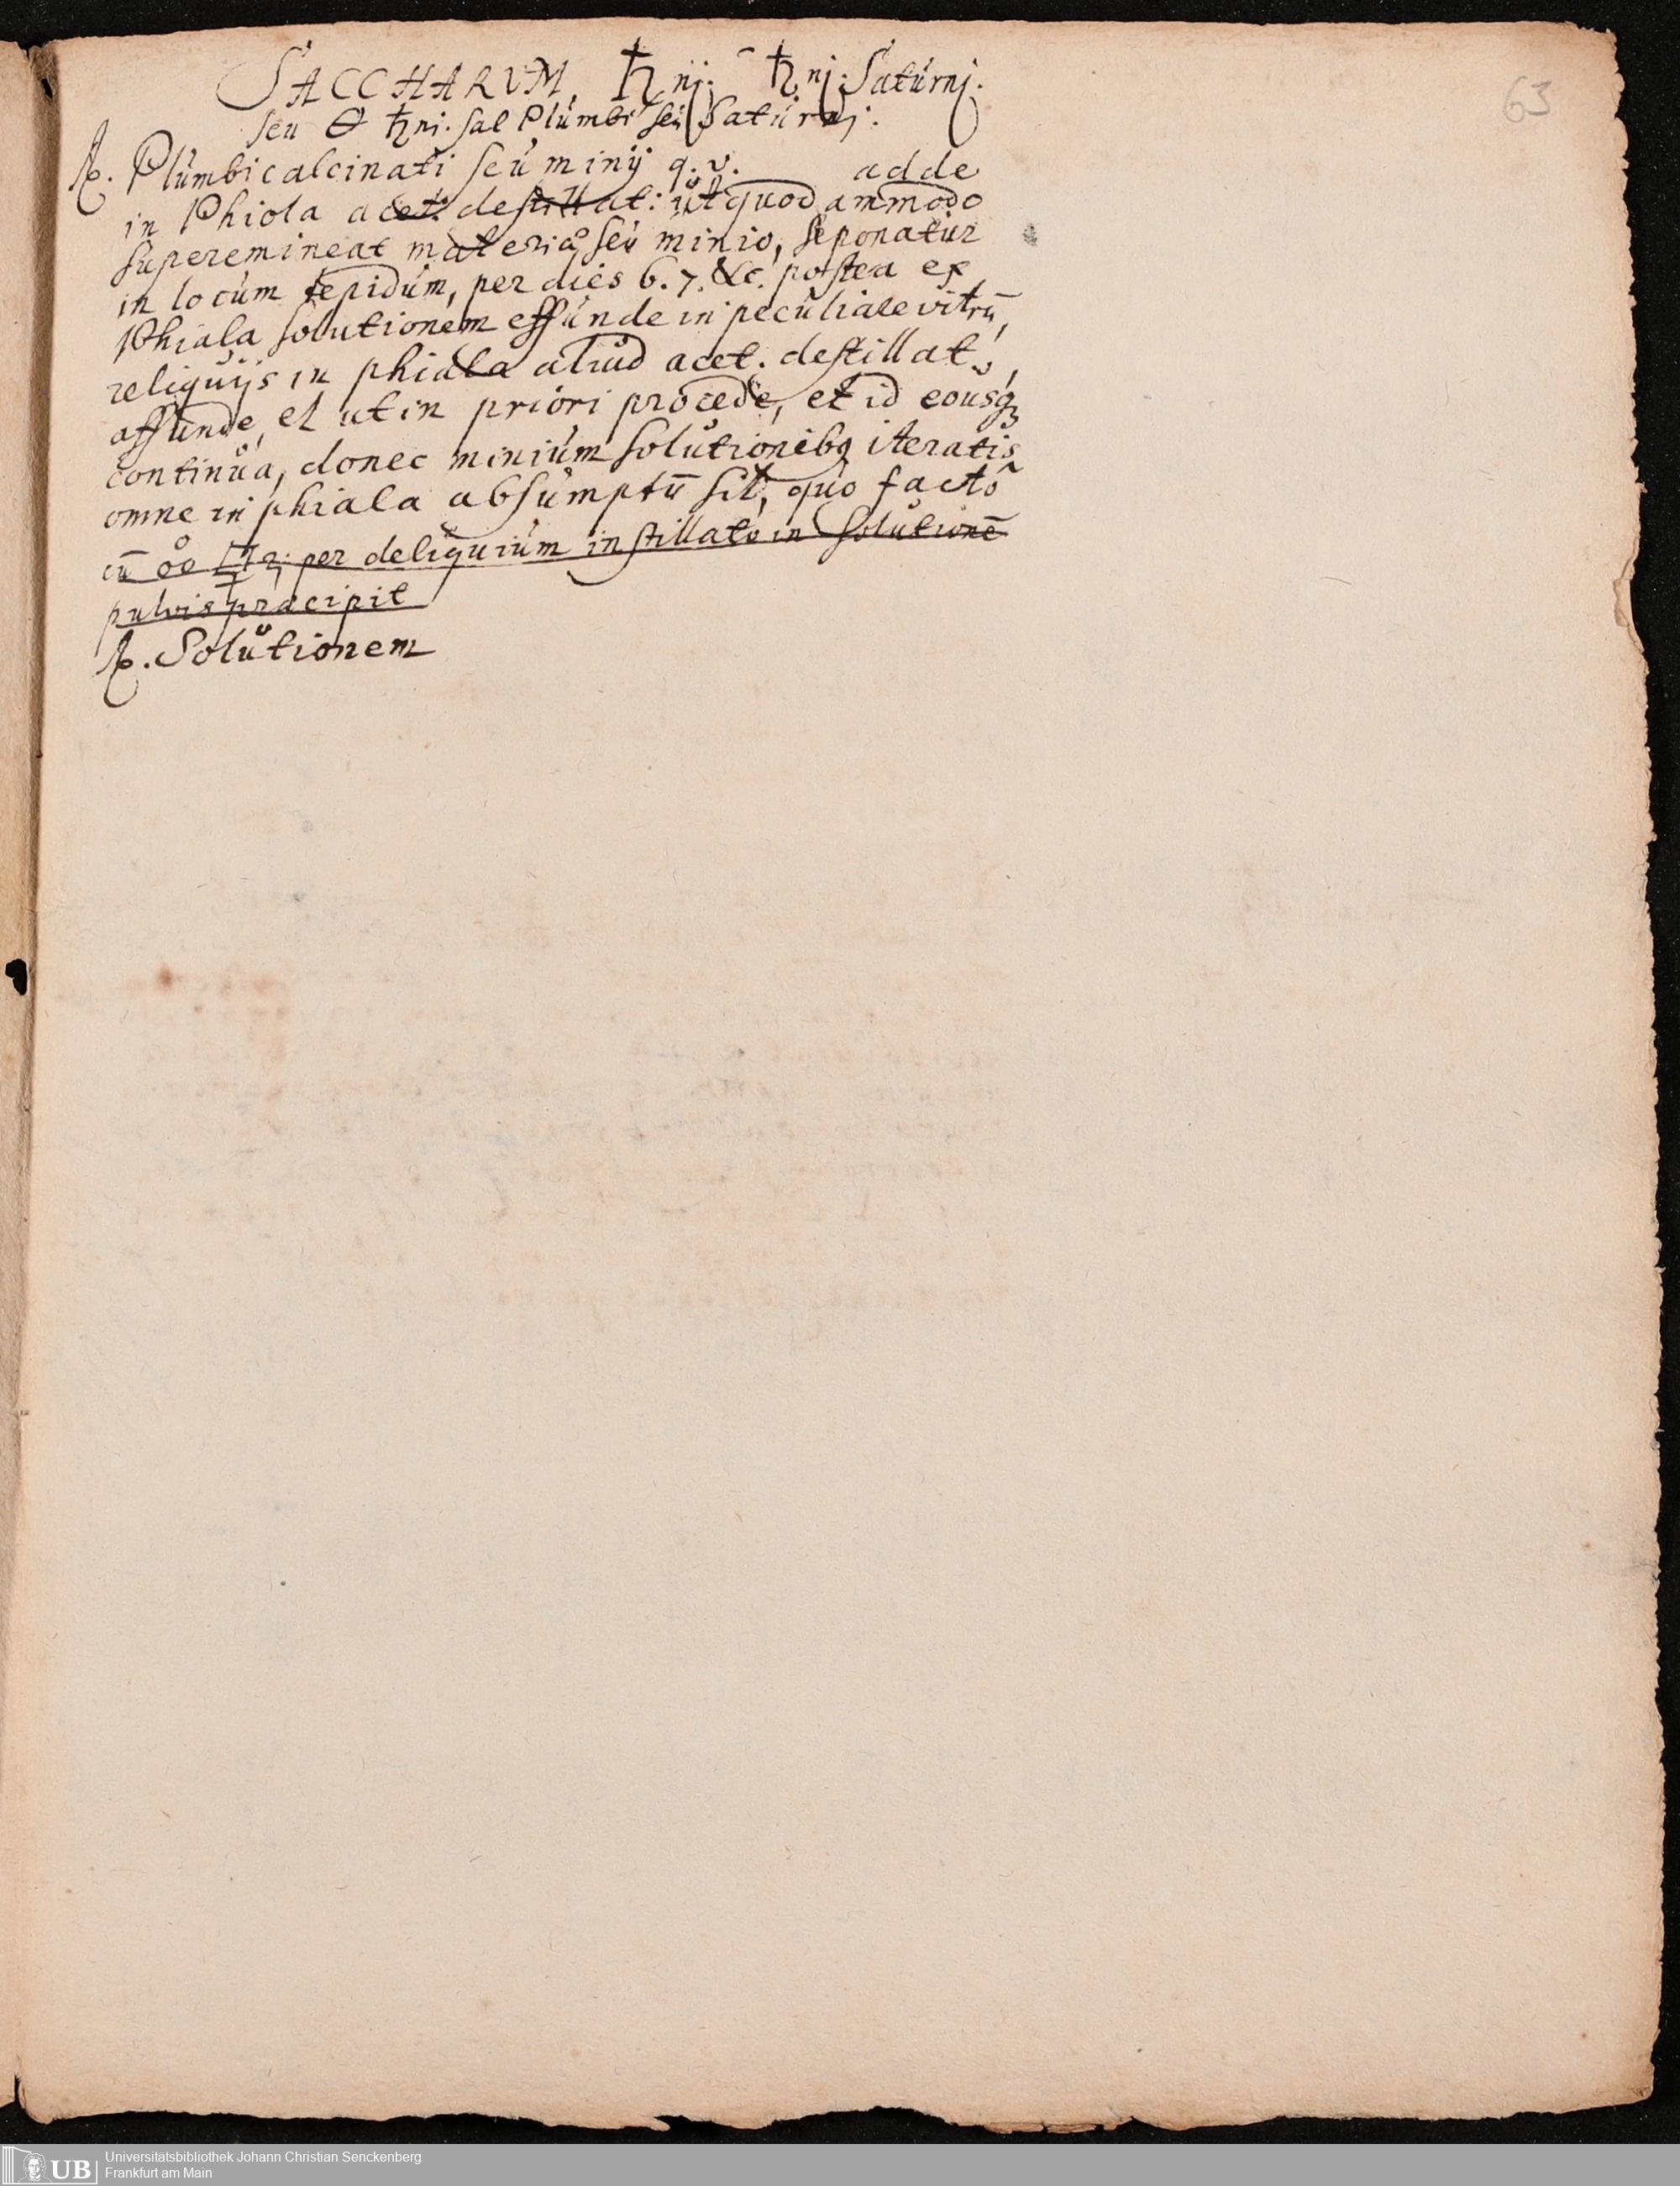 63
SACCHARVM, ♄nj: ♄nj: Saturnj.
seu 🜔 ♄nj. sal Plumbi seu Saturnj.
℞. Plumbi calcinati seu minÿ q. v. adde
in Phiola acet: destillat: ut quodammodo
superemineat materiæ seu minio, seponatur
in locum tepidum, per dies 6. 7. &c. postea ex
Phiala solutionem effunde in peculiare vitrū,
reliquÿs in phiala aliud acet. destillat.,
affunde, et ut in priori procede, et id eousqꝫ
continua, donec minium solutionibꝯ iteratis
omne in phiala absumptū sit, quo facto
cū per deliquium instillato in Solutionē
pulvis præcipit
℞. Solutionem
UB Universitätsbibliothek Johann Christian Senckenberg
Frankfurt am Main